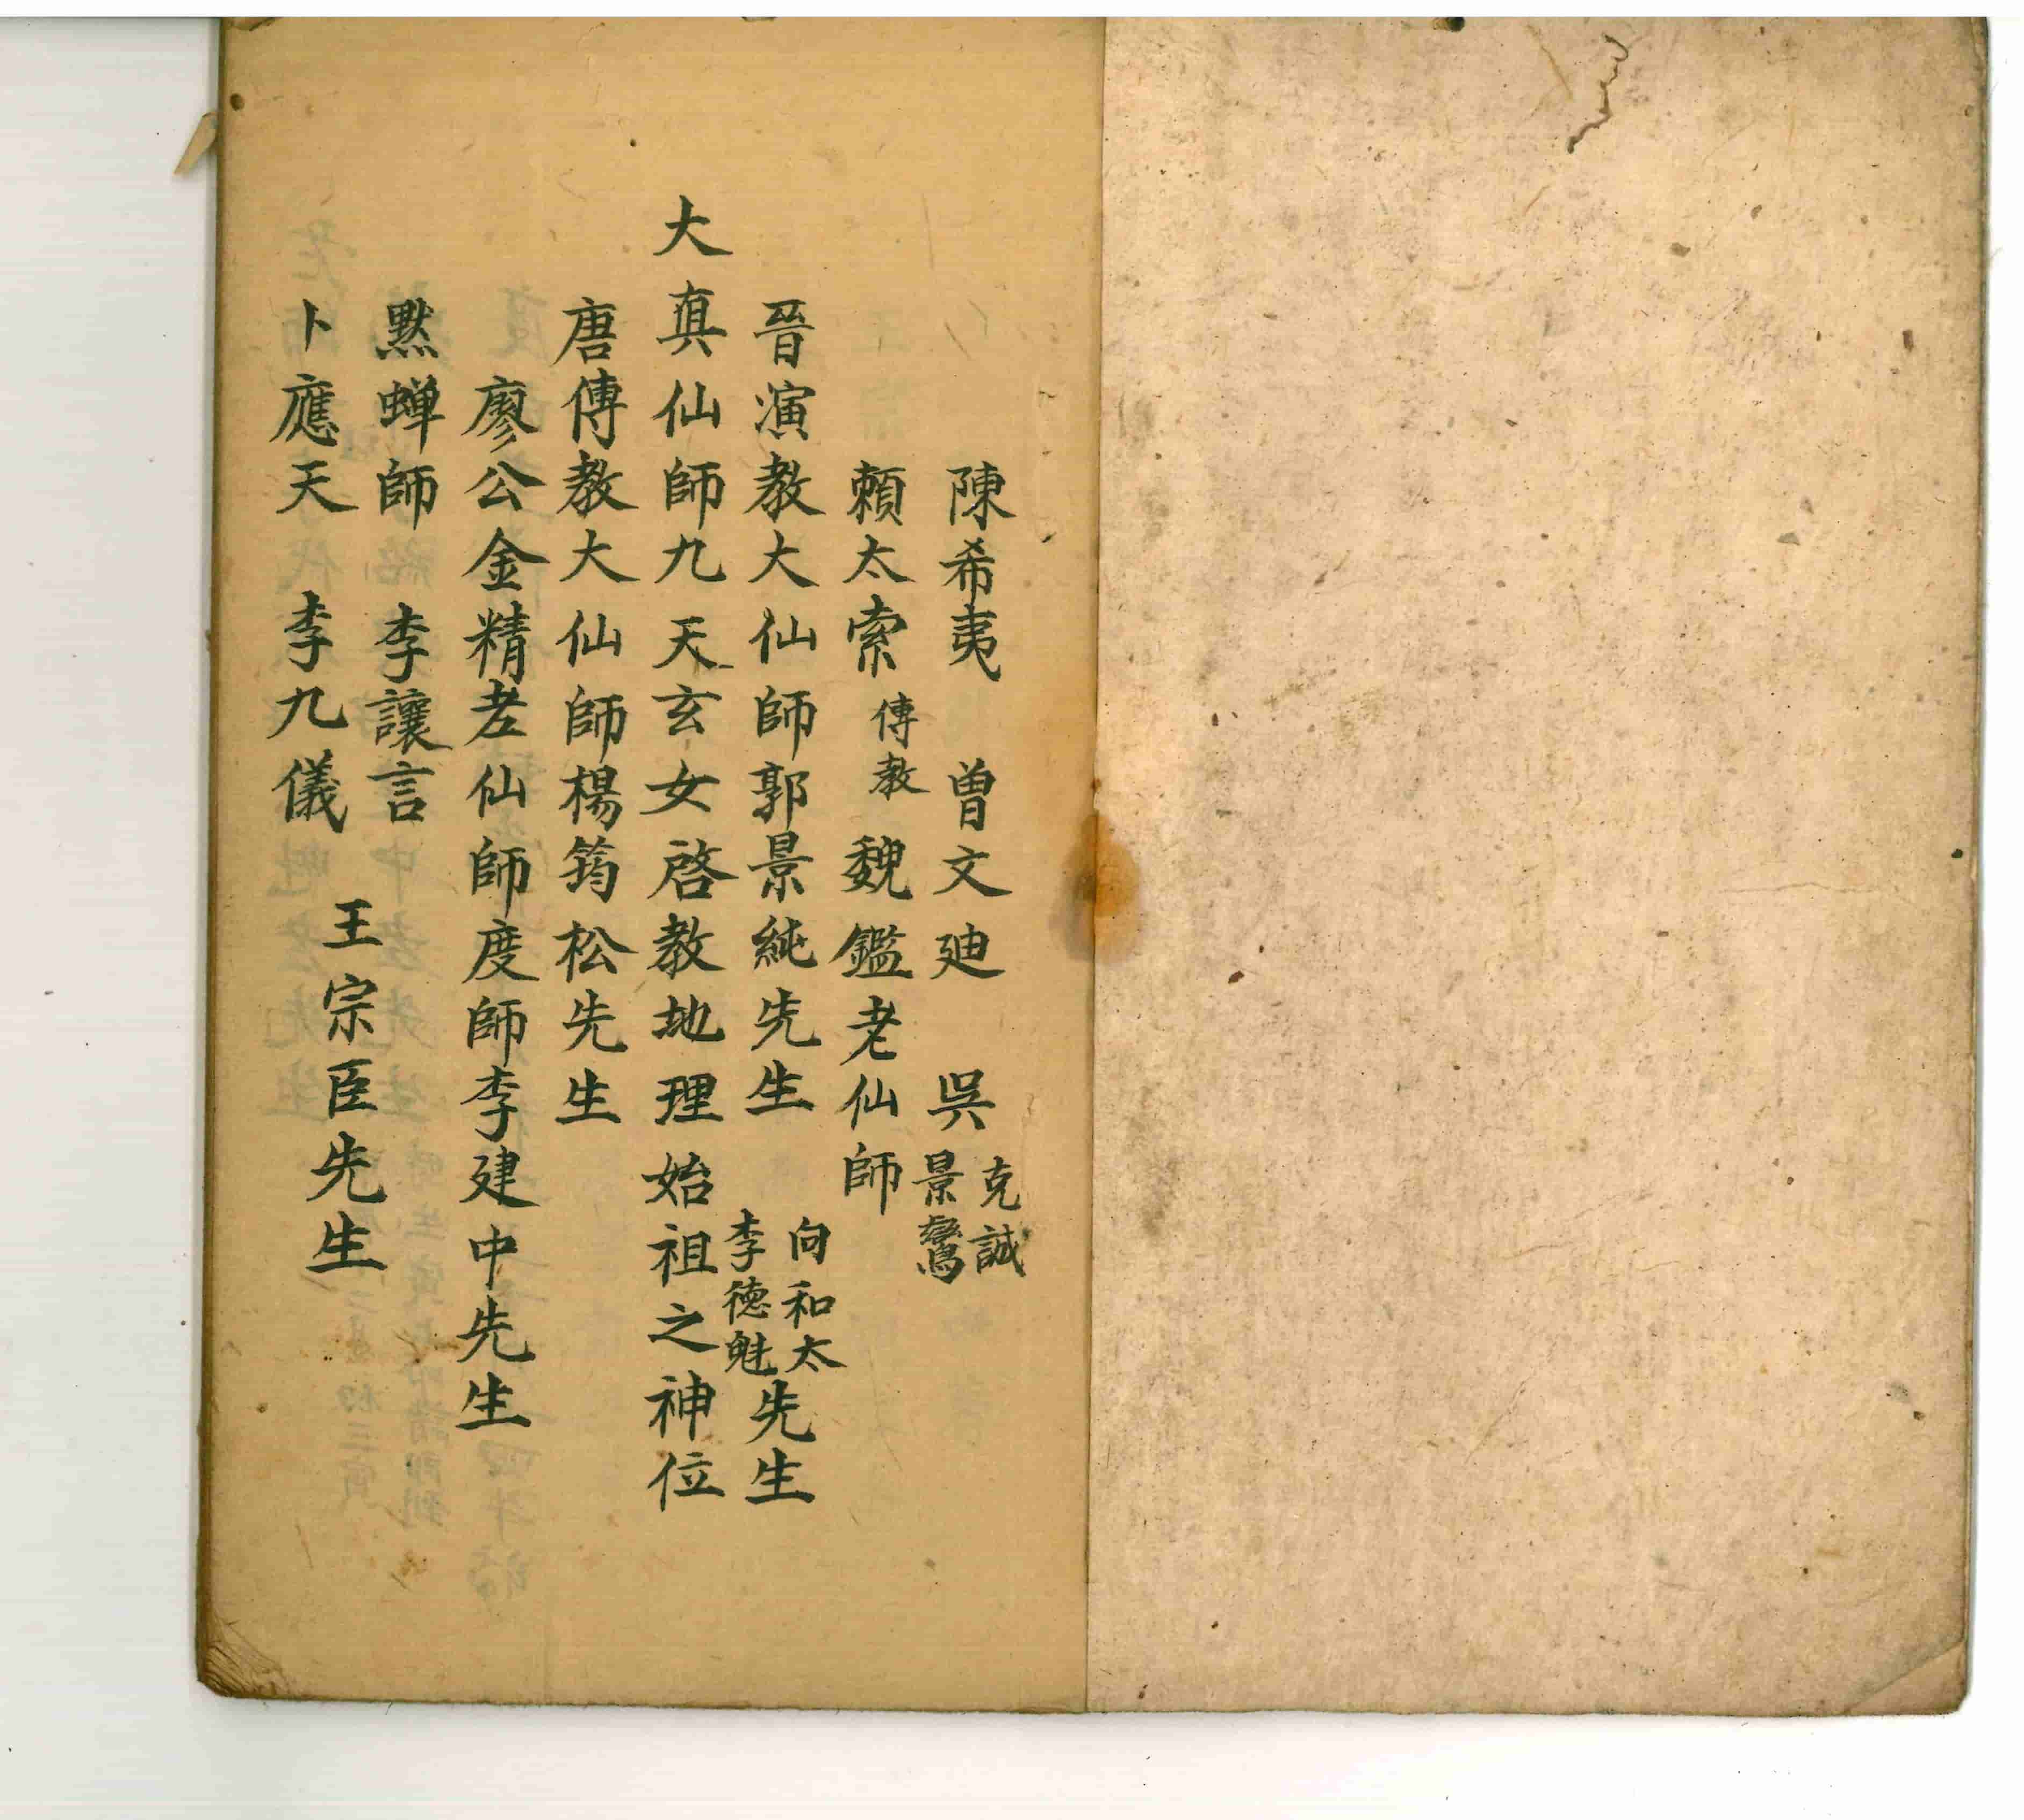 陳希夷 曾文廸 吳克誠景鸞
賴太索傳教 魏鑑老仙師
晉演教大仙師郭景純先生 向和太李德魁先生
大真仙師九天玄女啓教地理始祖之神位
唐傳教大仙師楊筠松先生
廖公金精老仙師度師李建中先生
黙蝉師 李讓言
卜應天 李九儀
王宗臣先生